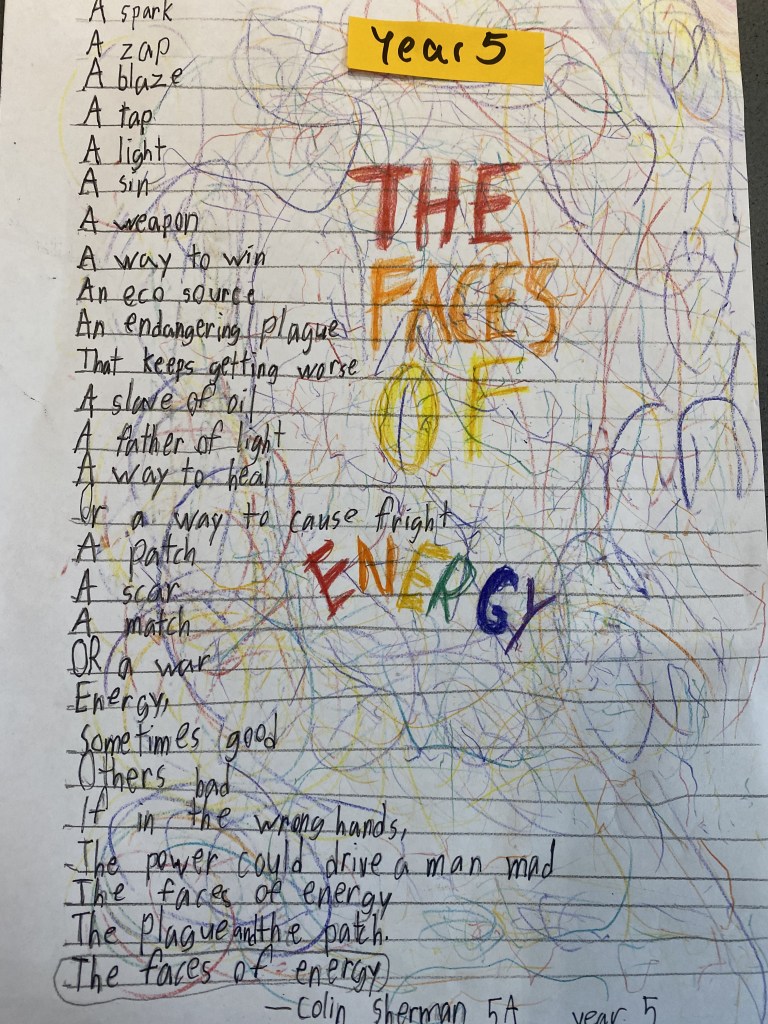 A spark
Year 5
A zap
A blaze
A tap
A light
A sin
A weapon
A way to win
An eco source
An endangering plague
That keeps getting worse
A slave of oil
A father of light
A way to heal
Or a way to cause fright
A patch
A scar
A match
OR a war
Energy,
sometimes good
Others bad
If in the wrong hands,
The power could drive a man mad
The faces of energy
The Plague and the patch.
The faces of energy
—Colin Sherman 5A year 5
THE
FACES
OF
ENERGY